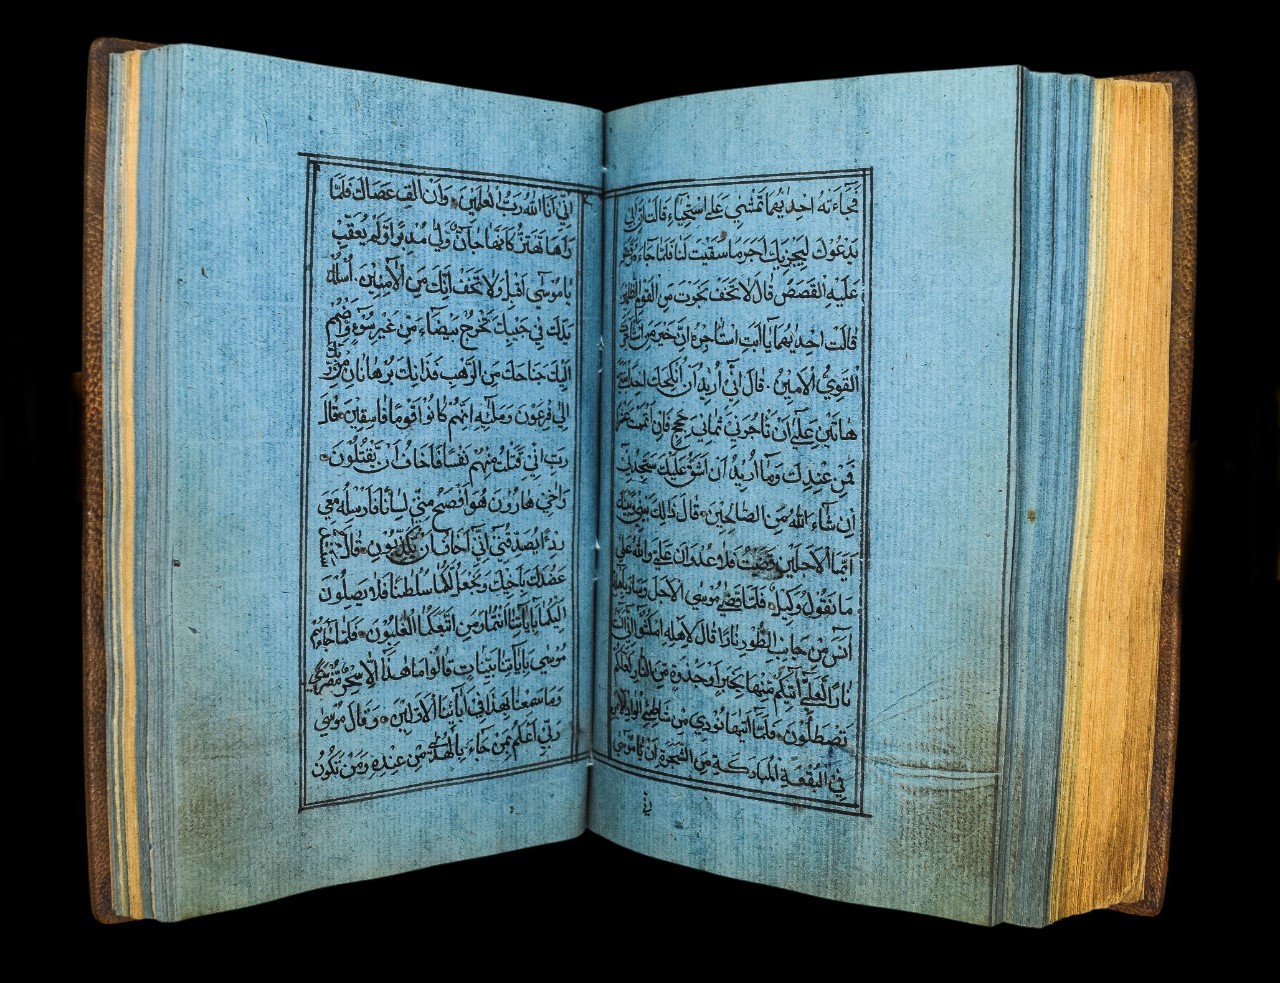 فَجَآءَتْهُ اِحْدٰيهُمَا تَمْشِي عَلَى اسْتِحْيَآءٍ قَالَتْ اِنَّ اَبِي
يَدْعُوكَ لِيَجْزِيَكَ اَجْرَ مَا سَقَيْتَ لَنَا فَلَمَّا جَآءَهُ وَقَصَّ
عَلَيْهِ الْقَصَصَ قَالَ لَا تَخَفْ نَجَوْتَ مِنَ الْقَوْمِ الظَّالِمِينَ
قَالَتْ اِحْدٰيهُمَا يَا اَبَتِ اسْتَاجِرْهُ اِنَّ خَيْرَ مَنِ اسْتَاجَرْتَ
الْقَوِيُّ الْاَمِينُ قَالَ اِنِّي اُرِيدُ اَنْ اُنْكِحَكَ اِحْدَى
هَاتَيْنِ عَلٰى اَنْ تَاجُرَنِي ثَمَانِيَ حِجَجٍ فَاِنْ اَتْمَمْتَ عَشْرًا
فَمِنْ عِنْدِكَ وَمَا اُرِيدُ اَنْ اَشُقَّ عَلَيْكَ سَتَجِدُنِي
اِنْ شَاءَ اللّٰهُ مِنَ الصَّالِحِينَ قَالَ ذٰلِكَ بَيْنِي وَبَيْنَكَ
اَيَّمَا الْاَجَلَيْنِ قَضَيْتُ فَلَا عُدْوَانَ عَلَيَّ وَاللّٰهُ عَلٰى
مَا نَقُولُ وَكِيلٌ فَلَمَّا قَضٰى مُوسَى الْاَجَلَ وَسَارَ بِاَهْلِهِ
آنَسَ مِنْ جَانِبِ الطُّورِ نَارًا قَالَ لِاَهْلِهِ امْكُثُوا اِنِّي آنَسْتُ
نَارًا لَعَلِّي آتِيكُمْ مِنْهَا بِخَبَرٍ اَوْ جَذْوَةٍ مِنَ النَّارِ لَعَلَّكُمْ
تَصْطَلُونَ فَلَمَّا اَتٰيهَا نُودِيَ مِنْ شَاطِئِ الْوَادِ الْاَيْمَنِ
فِي الْبُقْعَةِ الْمُبَارَكَةِ مِنَ الشَّجَرَةِ اَنْ يَا مُوسٰى
اِنِّي اَنَا اللّٰهُ رَبُّ الْعٰلَمِينَ وَاَنْ اَلْقِ عَصَاكَ فَلَمَّا
رَاٰهَا تَهْتَزُّ كَاَنَّهَا جَآنٌّ وَلّٰى مُدْبِرًا وَلَمْ يُعَقِّبْ
يَا مُوسٰى اَقْبِلْ وَلَا تَخَفْ اِنَّكَ مِنَ الْاٰمِنِينَ اُسْلُكْ
يَدَكَ فِي جَيْبِكَ تَخْرُجْ بَيْضَاءَ مِنْ غَيْرِ سُوٓءٍ وَاضْمُمْ
اِلَيْكَ جَنَاحَكَ مِنَ الرَّهْبِ فَذَانِكَ بُرْهَانَانِ مِنْ رَبِّكَ
اِلٰى فِرْعَوْنَ وَمَلَئِهِ اِنَّهُمْ كَانُوا قَوْمًا فَاسِقِينَ قَالَ
رَبِّ اِنِّي قَتَلْتُ مِنْهُمْ نَفْسًا فَاَخَافُ اَنْ يَقْتُلُونِ
وَاَخِي هَارُونُ هُوَ اَفْصَحُ مِنِّي لِسَانًا فَاَرْسِلْهُ مَعِيَ
رِدْءًا يُصَدِّقُنِي اِنِّي اَخَافُ اَنْ يُكَذِّبُونِ قَالَ سَنَشُدُّ
عَضُدَكَ بِاَخِيكَ وَنَجْعَلُ لَكُمَا سُلْطَانًا فَلَا يَصِلُونَ
اِلَيْكُمَا بِاٰيَاتِنَا اَنْتُمَا وَمَنِ اتَّبَعَكُمَا الْغٰلِبُونَ فَلَمَّا جَاءَهُمْ
مُوسٰى بِاٰيَاتِنَا بَيِّنَاتٍ قَالُوا مَا هٰذَا اِلَّا سِحْرٌ مُفْتَرًى
وَمَا سَمِعْنَا بِهٰذَا فِي اٰبَائِنَا الْاَوَّلِينَ وَقَالَ مُوسٰى
رَبِّي اَعْلَمُ بِمَنْ جَاءَ بِالْهُدٰى مِنْ عِنْدِهِ وَمَنْ تَكُونُ